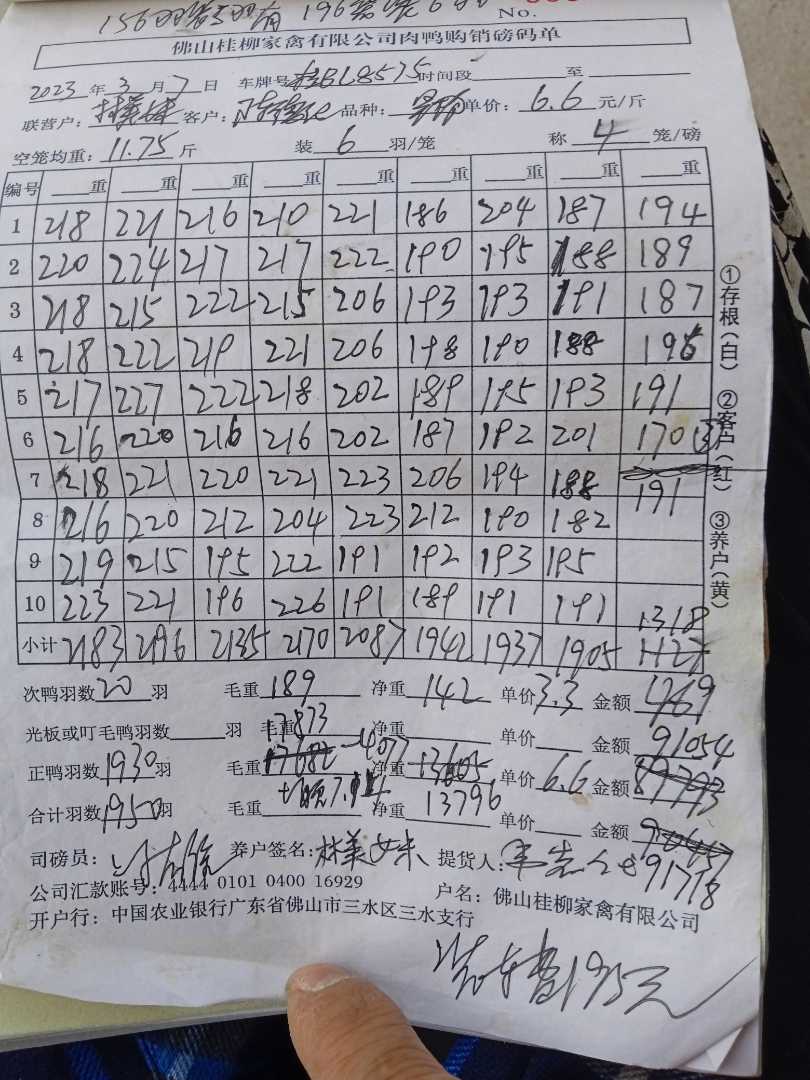 No.
佛山桂柳家禽有限公司肉鸭购销磅码单
2023 年 3 月 7 日 车牌号 8575 时间段 至
联营户: 客户: 品种: 单价: 6.6 元/斤
空笼均重: 11.75 斤 装 6 羽/笼 称 4 笼/磅
编号 重 重 重 重 重 重 重 重 重
1 218 221 216 210 221 186 204 187 194
2 220 224 217 217 222 190 195 188 189
3 218 215 222 215 206 193 193 191 187
4 218 222 219 221 206 198 190 188 195
5 217 227 222 218 202 189 195 193 191
6 216 220 216 216 202 187 192 201 170 ③
7 218 221 220 221 223 206 194 188 191
8 216 220 212 204 223 212 190 182
9 219 215 195 222 191 192 193 195
10 223 221 196 226 191 189 191 191 1318
小计 2183 2135 2170 2087 1942 1937 1905 1127
①存根(白) ②客户(红) ③养户(黄)
次鸭羽数 20 羽 毛重 189 净重 142 单价 3.3 金额
光板或叮毛鸭羽数 羽 毛重 17873 净重 单价 金额 91054
正鸭羽数 1930 羽 毛重 17682 -4077 净重 13605 单价 6.6 金额 89793
合计羽数 1950 羽 毛重 净重 13796 单价 金额
司磅员: 养户签名: 林美 提货人: 91718
公司汇款账号: 4444 0101 0400 16929 户名: 佛山桂柳家禽有限公司
开户行: 中国农业银行广东省佛山市三水区三水支行
装车费195元